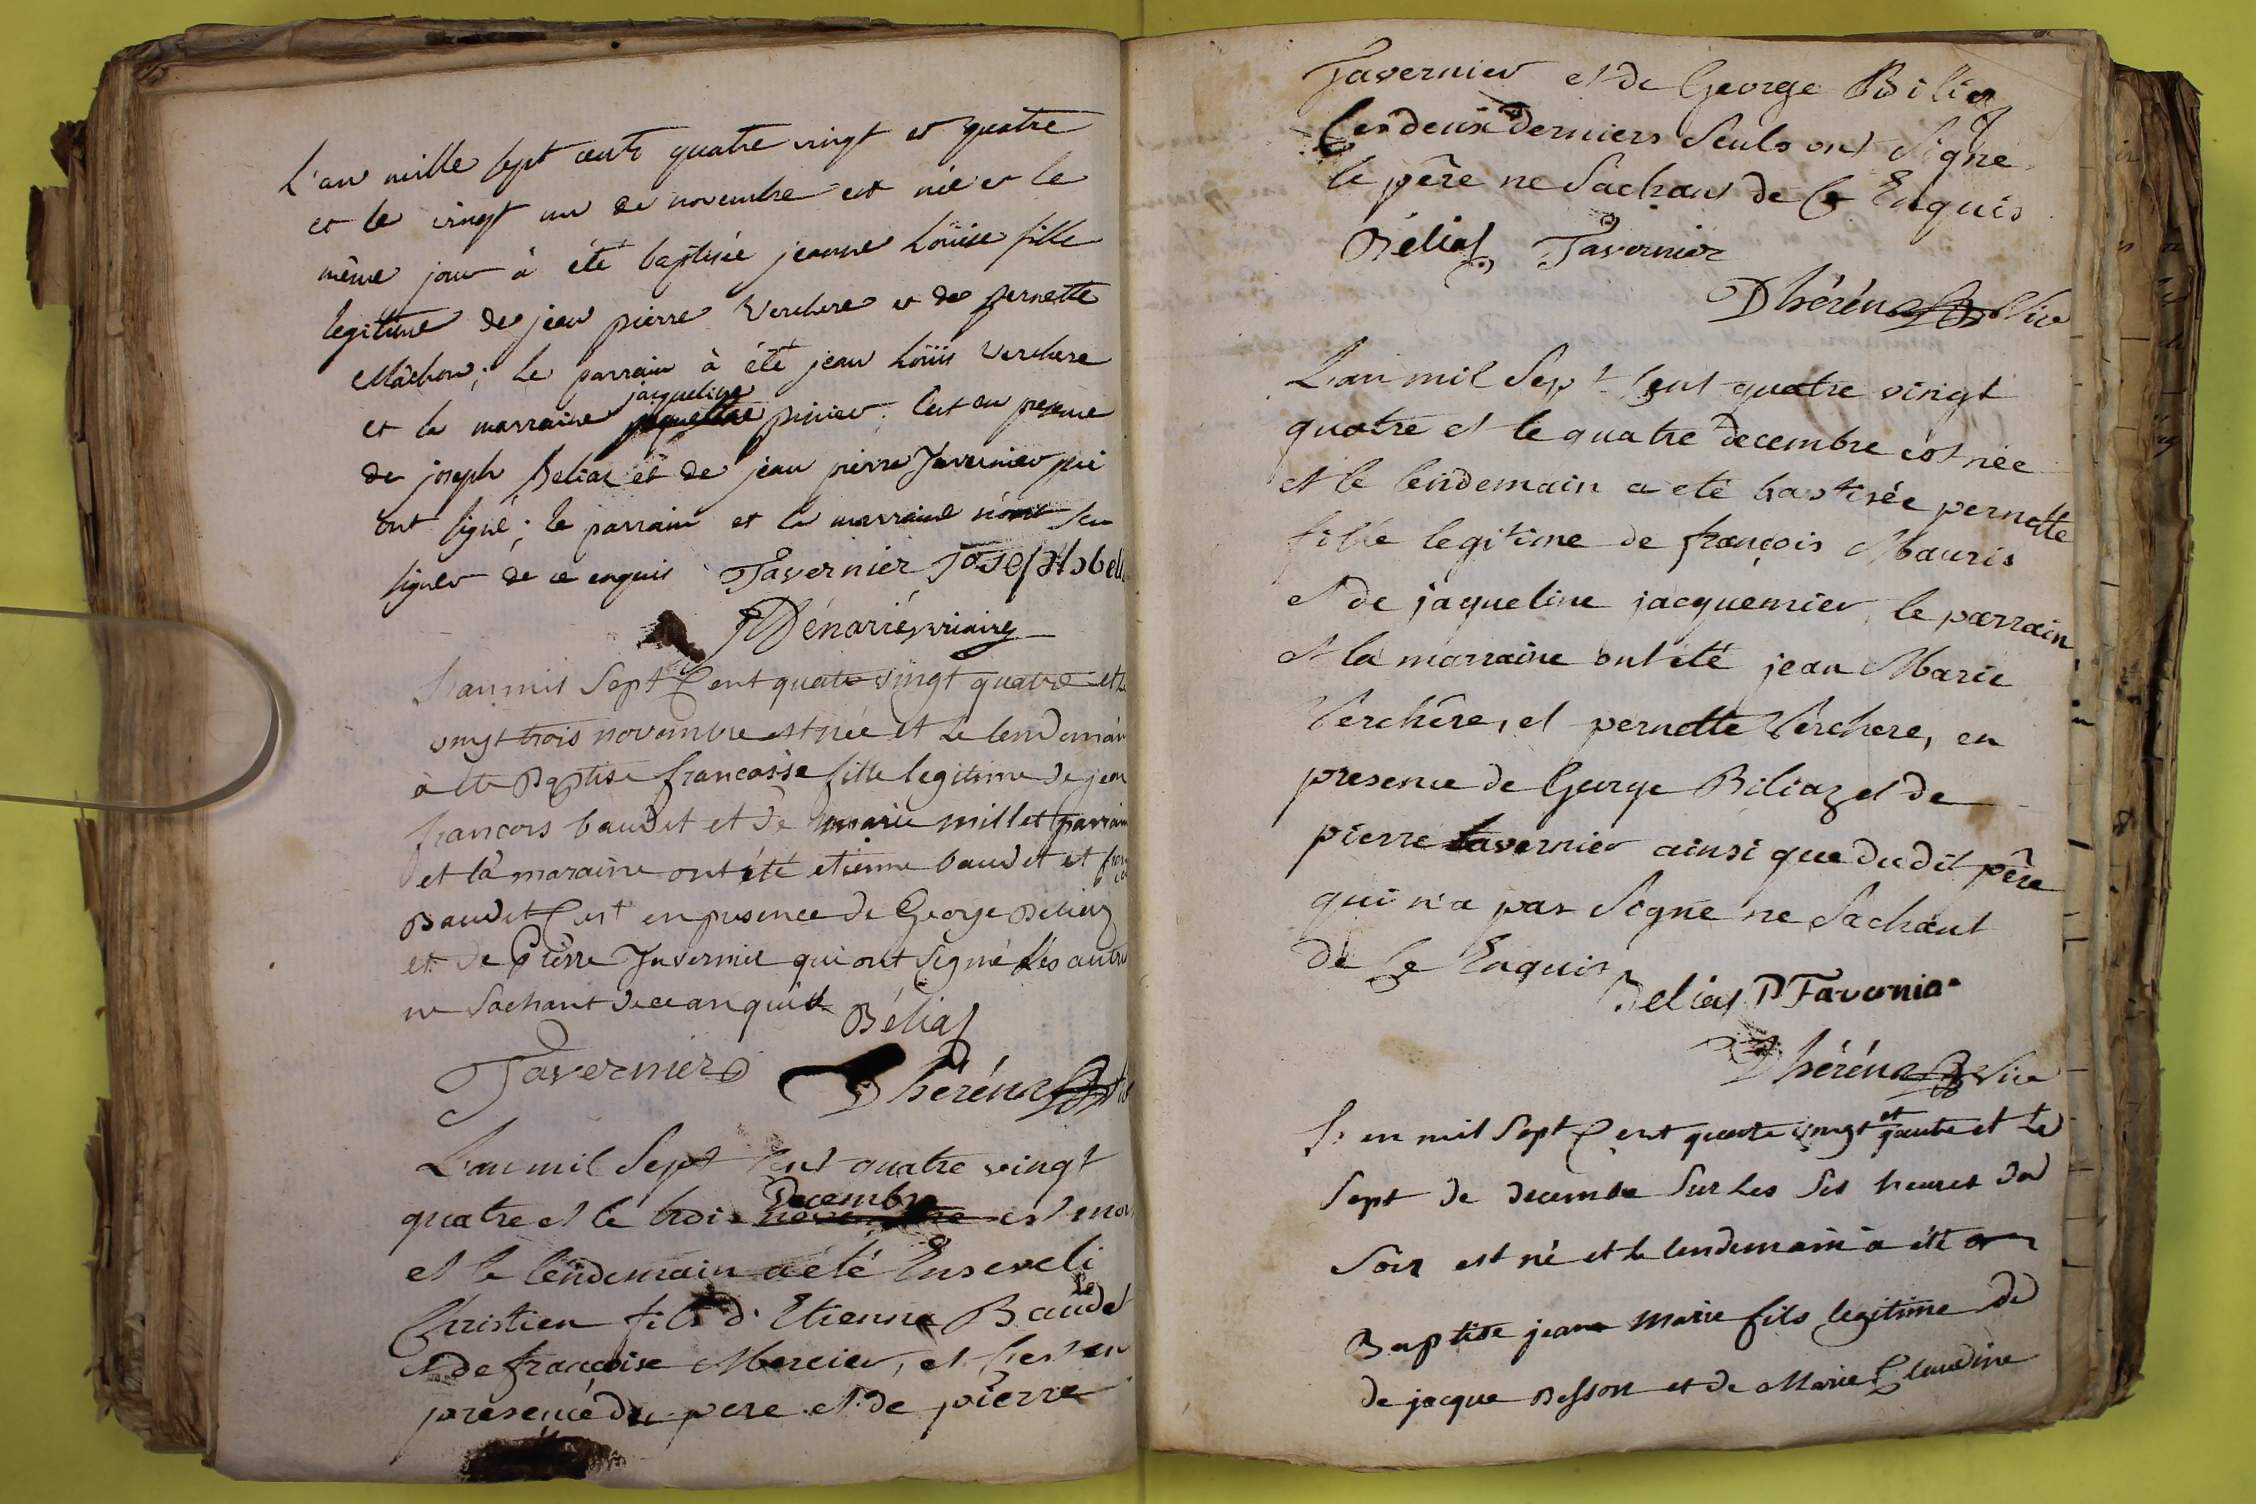 L'an mille sept cents quatre vingt et quatre
et le vingt un de novembre est née et le
même jour à été baptisée jeanne Loüise fille
legitime de jean pierre Verchere et de pernette
Mâchon; Le parrain à été jean Loüis Verchere
jacqueline
et la marraine pinier; C'est en presence
de joseph Beliaz et de jean pierre Tavernier qui
ont signé; le parrain et la marraine n'ont sçu
signer de ce enquis Tavernier Joseph belia
Dénarié vicaire
Lan mil Sept Cent quatre vingt quatre et le
vingt trois novembre est née et Le lendemain
à été Baptise francoise fille legitime de jean
francois baudet et de marie millet parrain
et la maraine ont été etienne baudet et
Baudet C'est en presence de George Beliaz
et de Pierre Tavernier qui ont Signé Les autre
ne Sachant de ce anquis Béliaz
Tavernier Dhéréns
L'an mil Sept Cent quatre vingt
Decembre
quatre et le trois novembre est mort
et le lendemain a été Enseveli
Christien fils d'Etienne Baudet
et de françoise Mercier, et C'est en
presence du pere et de pierre
Tavernier et de George Biliaz
Ces deux derniers Seuls ont Signé
le père ne Sachant de Ce Enquis
Béliaz Tavernier
Dhéréns Vice
L'an mil Sept Cent quatre vingt
quatre et le quatre Decembre est née
et le lendemain a eté batisée pernette
fille legitime de françois Mauris
et de jaqueline jacquemier, le parrain
et la marraine ont été jean Marie
Verchère, et pernette Verchere, en
presence de George Biliaz et de
pierre tavernier ainsi que dudit père
qui n'a pas Signe ne Sachant
de Ce Enquis
Beliaz P Tavernier
Dhéréns Vice
et
L'en mil Sept Cent quatre vingt quatre et Le
Sept de decembre Sur Les Sis heures du
Soir est né et le lendemain à été
Baptise jean Marie fils legitime de
de jacque Besson et de Marie Claudine